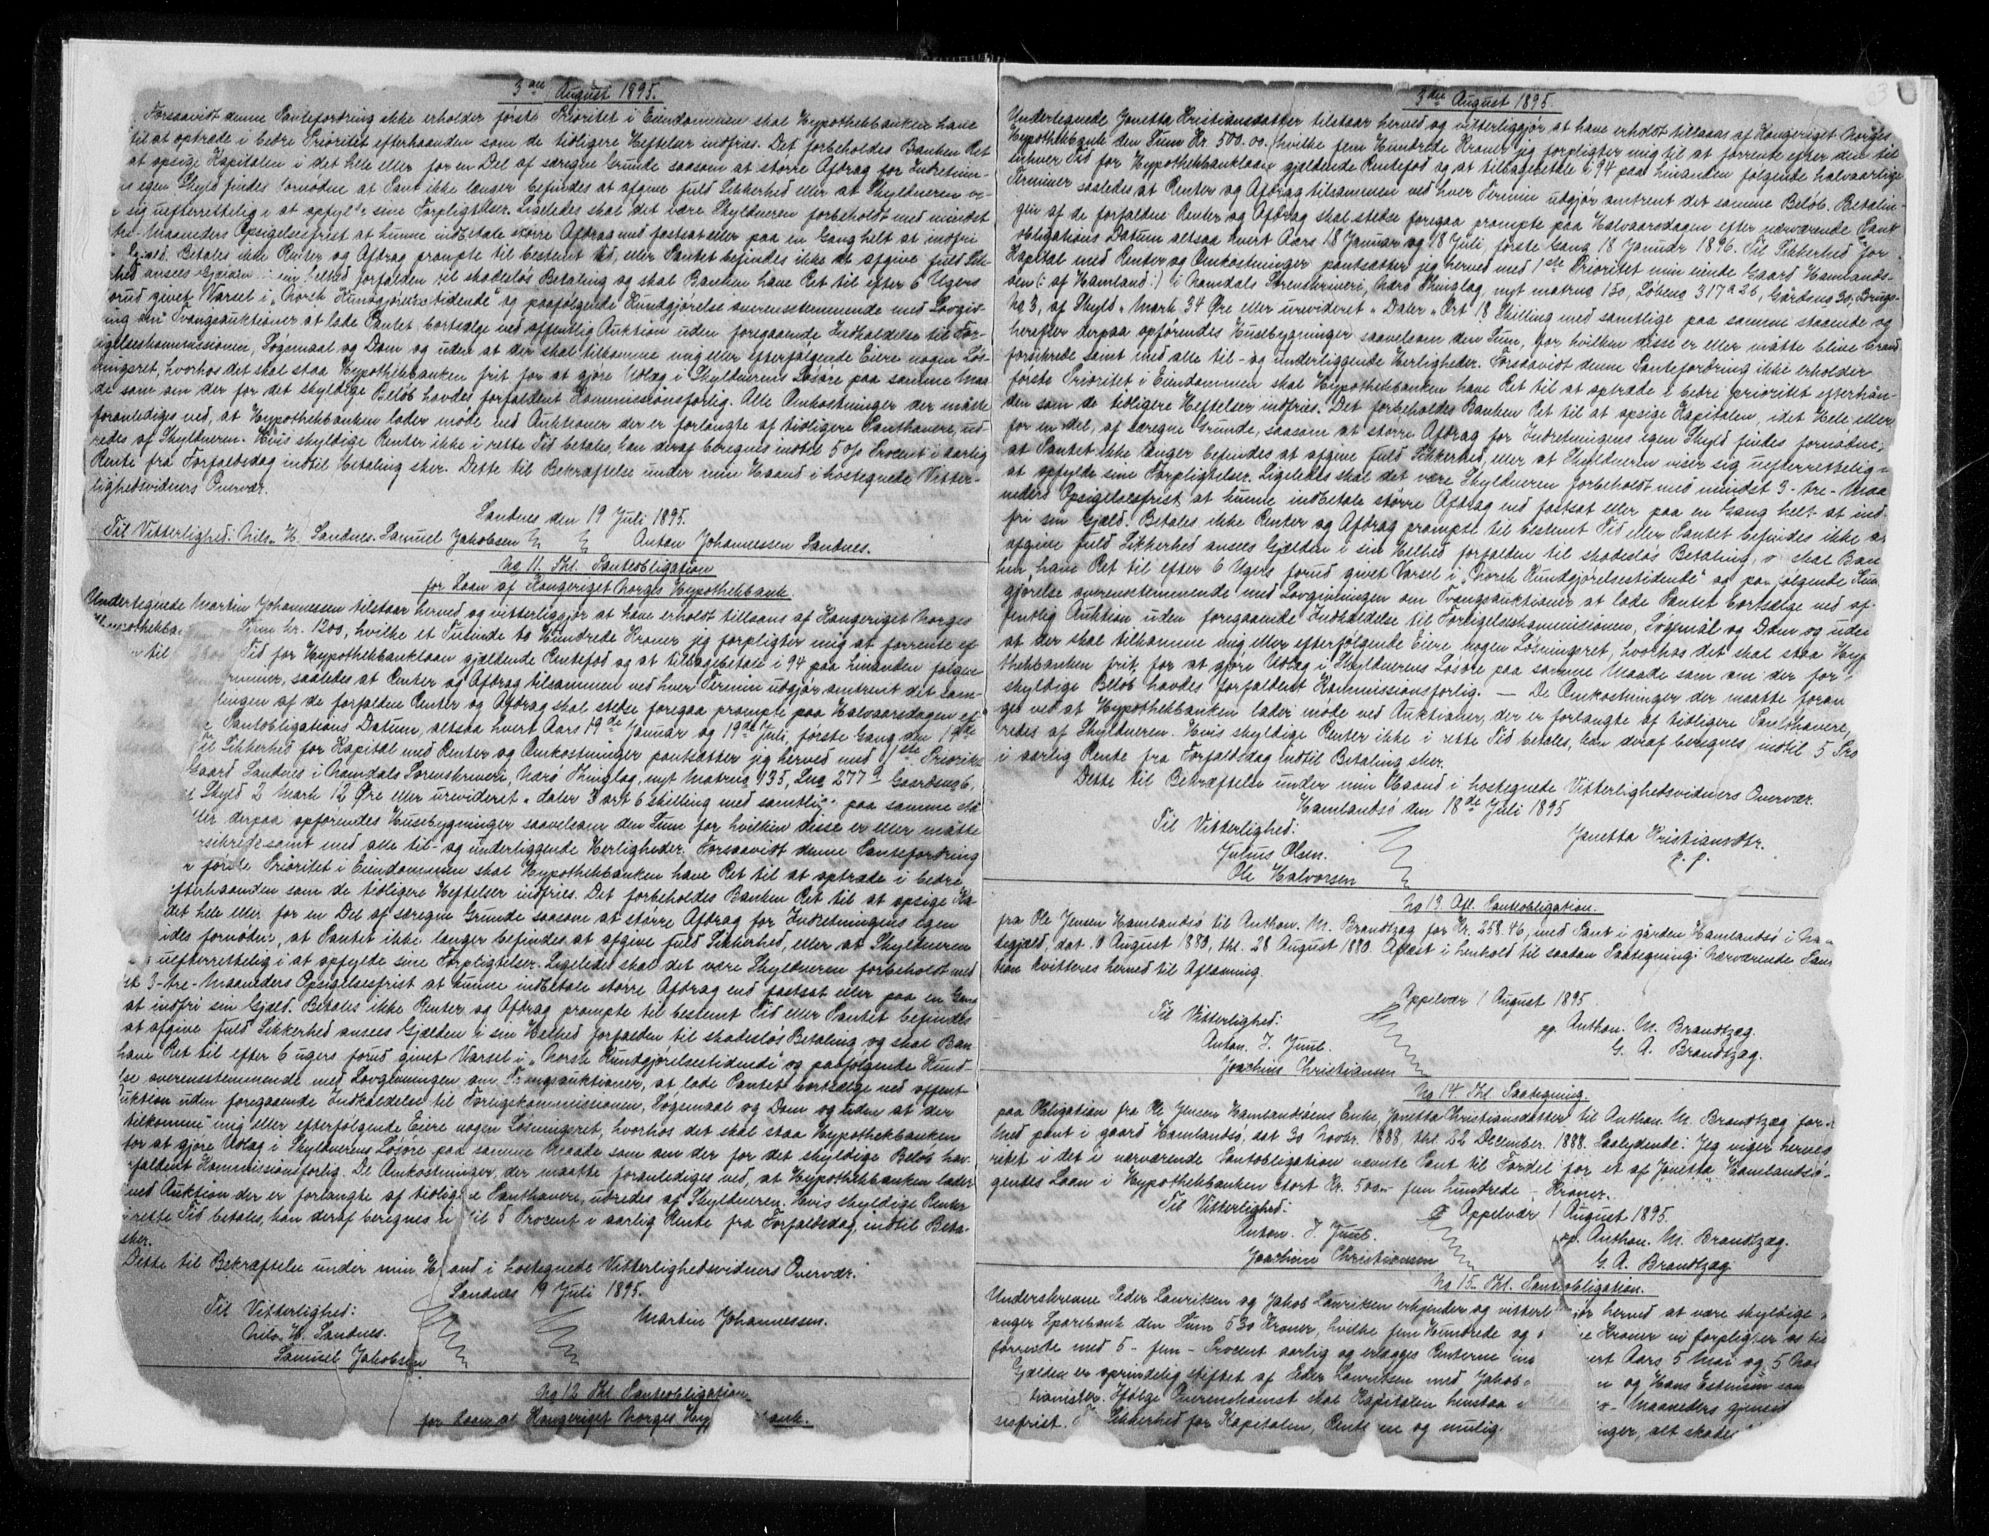 3die August 1895.
Forsaavidt denne Panteforderung ikke erholder første Prioritet i Eiendommen skal Hypothekbanken have
til at optræde i bedre Prioritet efterhaanden som de tidligere Heftelser indfries. Det forbeholdes Banken Ret
at opsige Kapitalen i det hele eller for en Del af særegne Grunde saasom at større Afdrag for Indretnin-
ns egen Skyld findes fornødne at Pant ikke længer befindes at afgive fuld Sikkerhed eller at Skyldneren vi-
sig uefterrettelig i at opfylde sine Forpligtelser. Ligeledes skal det være Skyldneren forbeholdt med mindst
tre Maaneders Opsigelsesfrist at kunne indbetale større Afdrag end fastsat eller paa en Gang helt at indfri
Gjæld. Betales ikke Renter og Afdrag prompte til bestemt Tid, eller Pantet befindes ikke at afgive fuld Sik-
rhed ansees Gjælden i sin helhed forfalden til skadesløs Betaling og skal Banken have Ret til efter 6 Ugers
forud givet Varsel i „Norsk Kundgjørelsestidende" og paafølgende Kundgjørelse overensstemmende med Lovgiv-
ning om Tvangsauktioner at lade Pantet bortsælge ved offentlig Auktion uden foregaaende Indkaldelse til For-
ligelseskommissionen, Søgsmaal og Dom og uden at der skal tilkomme mig eller efterfølgende Eiere nogen Løs-
ningsret, hvorhos det skal staa Hypothekbanken frit for at gjøre Udlæg i Skyldnerens Løsøre paa samme Maa-
de som om der for det skyldige Beløb havdes forfaldent Kommissionsforlig. Alle Omkostninger der måtte
foranlediges ved, at Hypothekbanken lader møde ved Auktioner der er forlangte af tidligere Panthavere, ud-
redes af Skyldneren. Hvis skyldige Renter ikke i rette Tid betales, kan deraf beregnes indtil 5 % Procent i aarlig
Rente fra Forfaldsdag indtil betaling sker. Dette til Bekræftelse under min Haand i hostegnede Vitter-
lighedsvidners Overvær.
Sandnes den 19 Juli 1895.
Til Vitterlighed: Nils H. Sandnes. Samuel Jakobsen Anton Johannessen Sandnes.
No 11. Thl. Panteobligation
for Laan af Kongeriget Norges Hypothekbank
Undertegnede Martin Johannessen tilstaar herved og vitterliggjør at have erholdt tillaans af Kongeriget Norges
Hypothekba Sum kr. 1200, hvilke et Tusinde to Hundrede Kroner jeg forpligter mig at forrente ef
n til Tid for Hypothekbanklaan gjældende Rentefod og at tilbagebetale i 94 paa hinanden følgen
rminer, saaledes at Renter og Afdrag tilsammen ved hver Termin udgjør omtrent det sam-
lingen af de forfaldne Renter og Afdrag skal stedse foregaa prompte paa Halvaarsdagen ef
e Pantobligations Datum, altsaa hvert Aars 19de Januar og 19de Juli, første Gang den 19de
Til Sikkerhed for Kapital med Renter og Omkostninger pantsætter jeg herved med 1ste Priorite
Gaard Sandnes i Namdals Sorenskriveri, Nærø Thinglag, nyt Matrno 135, Lno 277a Gaardsno 6,
f Skyld 2 Mark 12 Øre eller urevideret „ daler 3 ort 6 skilling med samtlige paa samme stå
ller derpaa opførendes Husebygninger saavelsom den Sum for hvilken disse er eller måtte
rsikrede samt med alle til- og underliggende Herligheder. Forsaavidt denne Pantefordring
r første Prioritet i Eiendommen skal Hypothekbanken have Ret til at optræde i bedre
efterhaanden som de tidligere Heftelser indfries. Det forbeholdes Banken Ret til at opsige Ka
det hele eller for en Del af særegne Grunde saasom at større Afdrag for Indretningens egen
ides fornødne, at Pantet ikke længer befindes at afgive fuld Sikkerhed, eller at Skyldneren
uefterrettelig i at opfylde sine Forpligtelser. Ligeledes skal det være Skyldneren forbeholdt med
st 3-tre-Maaneders Opsigelsesfrist at kunne indbetale større Afdrag end fastsat eller paa en Gang
at indfri sin Gjæld. Betales ikke Renter og Afdrag prompte til bestemt Tid eller Pantet befindes
at afgive fuld Sikkerhed ansees Gjælden i sin Helhed forfalden til skadesløs Betaling og skal Ban
have Ret til efter 6 ugers forud givet Varsel i „Norsk Kundgjørelsestidende" og paafølgende Kund-
lse overensstemmende med Lovgivningen om Tvangsauktioner, at lade Pantet bortsælge ved offent
uktion uden foregaaende Indkaldelse til Forligskommissionen, Søgsmaal og Dom og uden at der
tilkomme mig eller efterfølgende Eiere nogen Løsningsret, hvorhos det skal staa Hypothekbanken
for at gjøre Udlæg i Skyldnerens Løsøre paa samme Maade som om der for det skyldige Beløb hav
rfaldent Kommissionsforlig. De Omkostninger, der maatte foranlediges ved, at Hypothekbanken lader
ved Auktion der er forlangte af tidligere Panthavere, udredes af Skyldneren. Hvis skyldige Renter
i rette Tid betales, kan deraf beregnes indtil 5 Procent i aarlig Rente fra Forfaldsdag, indtil Beta-
sker.
Dette til Bekræftelse under min Haand i hostegnede Vitterlighedsvidners Overvær.
Sandnes 19 Juli 1895.
Til Vitterlighed:
Nils H. Sandnes.
Samuel Jakobsen
Martin Johannessen.
No 12 Thl. Panteobligation
for Laan af Kongeriget Norges Hyp bank.
3die August 1895.
Undertegnede Janetta Kristiansdatter tilstaar herved og vitterliggjør at have erholdt tillaans af Kongeriget Norges
Hypothekbank den Sum Kr. 500.00. hvilke fem Hundrede Kroner jeg forpligter mig til at forrente efter den til
enhver Tid for Hypothekbanklaan gjældende Rentefod og at tilbagebetale i 94 paa hinanden følgende halvaarlige
Terminer saaledes at Renter og Afdrag tilsammen ved hver Termin udgjør omtrent det samme Beløb. Betalin-
gen af de forfaldne Renter og Afdrag skal stedse foregaa prompte paa Halvaarsdagen efter nærværende Pant
obligations Datum altsaa hvert Aars 18 Januar og 18 Juli, første Gang 18 Januar 1896. Til Sikkerhed for
Kapital med Renter og Omkostninger pantsætter jeg herved med 1ste Prioritet min eiende Gaard Hamlands-
øen (: af Hamland:) i Namdals Sorenskriveri, Nærø Thinglag, nyt matrno 150, Løbeno 317a 26, Gårdsno 30, Brugs-
No 3, af Skyld „ Mark 34 Øre eller urevideret „ Daler „ Ort 18 Skilling med samtlige paa samme staaende og
herefter derpaa opførendes Husebygninger saavelsom den Sum, for hvilken disse er eller måtte blive brand
forsikrede samt med alle til- og underliggende Herligheder. Forsaavidt denne Pantefordring ikke erholder
første Prioritet i Eiendommen skal Hypothekbanken have Ret til at optræde i bedre prioritet efterhån-
den som de tidligere Heftelser indfries. Det forbeholdes Banken Ret til at opsige Kapitalen, i det Hele eller
for en del, af særegne Grunde, saasom at større Afdrag for Indretningens egen Skyld findes fornødne,
at Pantet ikke længer befindes at afgive fuld Sikkerhed, eller at Skyldneren viser sig uefterrettelig i
at opfylde sine Forpligtelser. Ligeledes skal det være Skyldneren forbeholdt med mindst 3-tre-Maa
neders Opsigelsesfrist at kunne indbetale større Afdrag end fastsat eller paa en Gang helt at ind
fri sin Gjæld. Betales ikke Renter og Afdrag prompte til bestemt Tid eller Pantet befindes ikke at
afgive fuld Sikkerhed ansees Gjælden i sin Helhed forfalden til skadesløs Betaling, skal Ban
ken have Ret til efter 6 Ugers forud givet Varsel i „Norsk Kundgjørelsestidende" og paafølgende Kun
gjørelse overensstemmende med Lovgivningen om Tvangsauktioner at lade Pantet bortsælge ved of-
fentlig Auktion uden foregaaende Indkaldelse til Forligelseskommissionen, Søgsmål og Dom og uden
at der skal tilkomme mig eller efterfølgende Eiere nogen Løsningsret, hvorhos det skal staa Hyp
thekbanken frit for at gjøre Udlæg i Skyldnerens Løsøre paa samme Maade som om der for
skyldige Beløb havdes forfaldent Kommissionsforlig. — De Omkostninger der maatte foran
ges ved at Hypothekbanken lader møde ved Auktioner, der er forlangte af tidligere Panthavere,
redes af Skyldneren. Hvis skyldige Renter ikke i rette Tid betales, kan deraf beregnes, indtil 5 Pro
i aarlig Rente fra Forfaldsdag indtil Betaling sker.
Dette til Bekræftelse under min Haand i hostegnede Vitterlighedsvidners Overvær.
Hamlandsø den 18de Juli 1895
Til Vitterlighed:
Julius Olsen.
Ole Halvorsen
Janetta Kristiansdtr.
No 13. Afl. Panteobligation.
fra Ole Jensen Hamlandsø til Anthon. M. Brandtzæg for Kr. 258.46, med Pant i gården Hamlandsø i Na-
tegjæld, dat. 10 August 1880, thl. 28 August 1880. Aflæst i henhold til saadan Paategning: Nærværende Pant
tion kvitteres herved til Aflæsning.
Appelvær 1 August 1895.
Til Vitterlighed:
Anton. J. Juul.
Joachim Christiansen
pp. Anthon. M. Brandtzæg.
G. A. Brandtzæg.
No 14. Thl. Paategning
paa Obligation fra Ole Jensen Hamlandsøens Enke, Janetta Christiansdatter til Anthon. M. Brandtzæg for
Med pant i gaard Hamlandsø, dat 30 Novbr. 1888, thl. 22 December 1888. Saalydende: Jeg viger herved
ritet i det i nærværende Pantobligation nævnte Pant til Fordel for et af Janetta Hamlandsø-
gendes Laan i Hypothekbanken stort Kr. 500.- fem hundrede - Kroner.
Appelvær 1 August 1895.
Til Vitterlighed:
Anton. J. Juul.
Joachim Christiansen
pp. Anthon. M. Brandtzæg.
G. A. Brandtzæg
No 15. Thl. Panteobligation.
Underskrevne Peder Lauritsen og Jakob Lauritsen erkjender og vitterl gjør herved at være skyldige
anger Sparebank den Sum 530 Kroner, hvilke fem Hundrede og e Kroner vi forpligter os til
forrente med 5 - fem - Procent aarlig og erlægges Renterne in ert Aars 5 Mai og 5 Nov
Gjælden er oprindelig stiftet af Peder Lauritsen med Jakob n og Hans Estensen som
tionister. Ifølge Overenskomst skal Kapitalen henstaa Maaneders gjensid
sesfrist. Sikkerhed for Kapitalen, Rente ne og mulig inger, alt skades